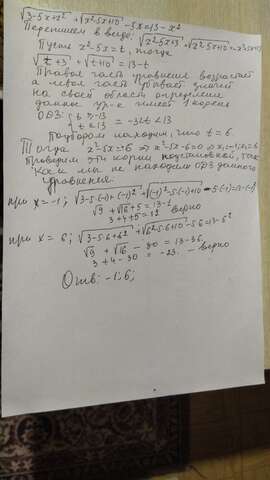 √3-5x+x² + √x²-5x+10 -5x=13-x²
Перепишем в виде: √x²-5x+3 + √x²-5x+10 =
Пусть x²-5x=t, тогда
√t+3 + √t+10 = 13-t
Правая часть уравнения возрастает
а левая часть убывает
на своей области определения
данное ур-е имеет 1 корень
ОДЗ: { t ≥ -3
{ t ≤ 13 = -3≤t≤13
Подбором находим, что t=6.
Тогда x²-5x=6 ⇒ x²-5x-6=0 ⇒ x₁=-1; x₂=6
Проверим эти корни подстановкой, так
как мы не находили ОДЗ данного
уравнения:
при x=-1; √3-5·(-1)+(-1)² + √(-1)²-5·(-1)+10 -5·(-1)=13-(-1)²
√9 + √16 + 5 = 13-1
3+4+5=12 верно
при x=6; √3-5·6+6² + √6²-5·6+10 -5·6=13-6²
√9 + √16 - 30 = 13-36
3+4-30 = -23. - верно
Отв: -1; 6;